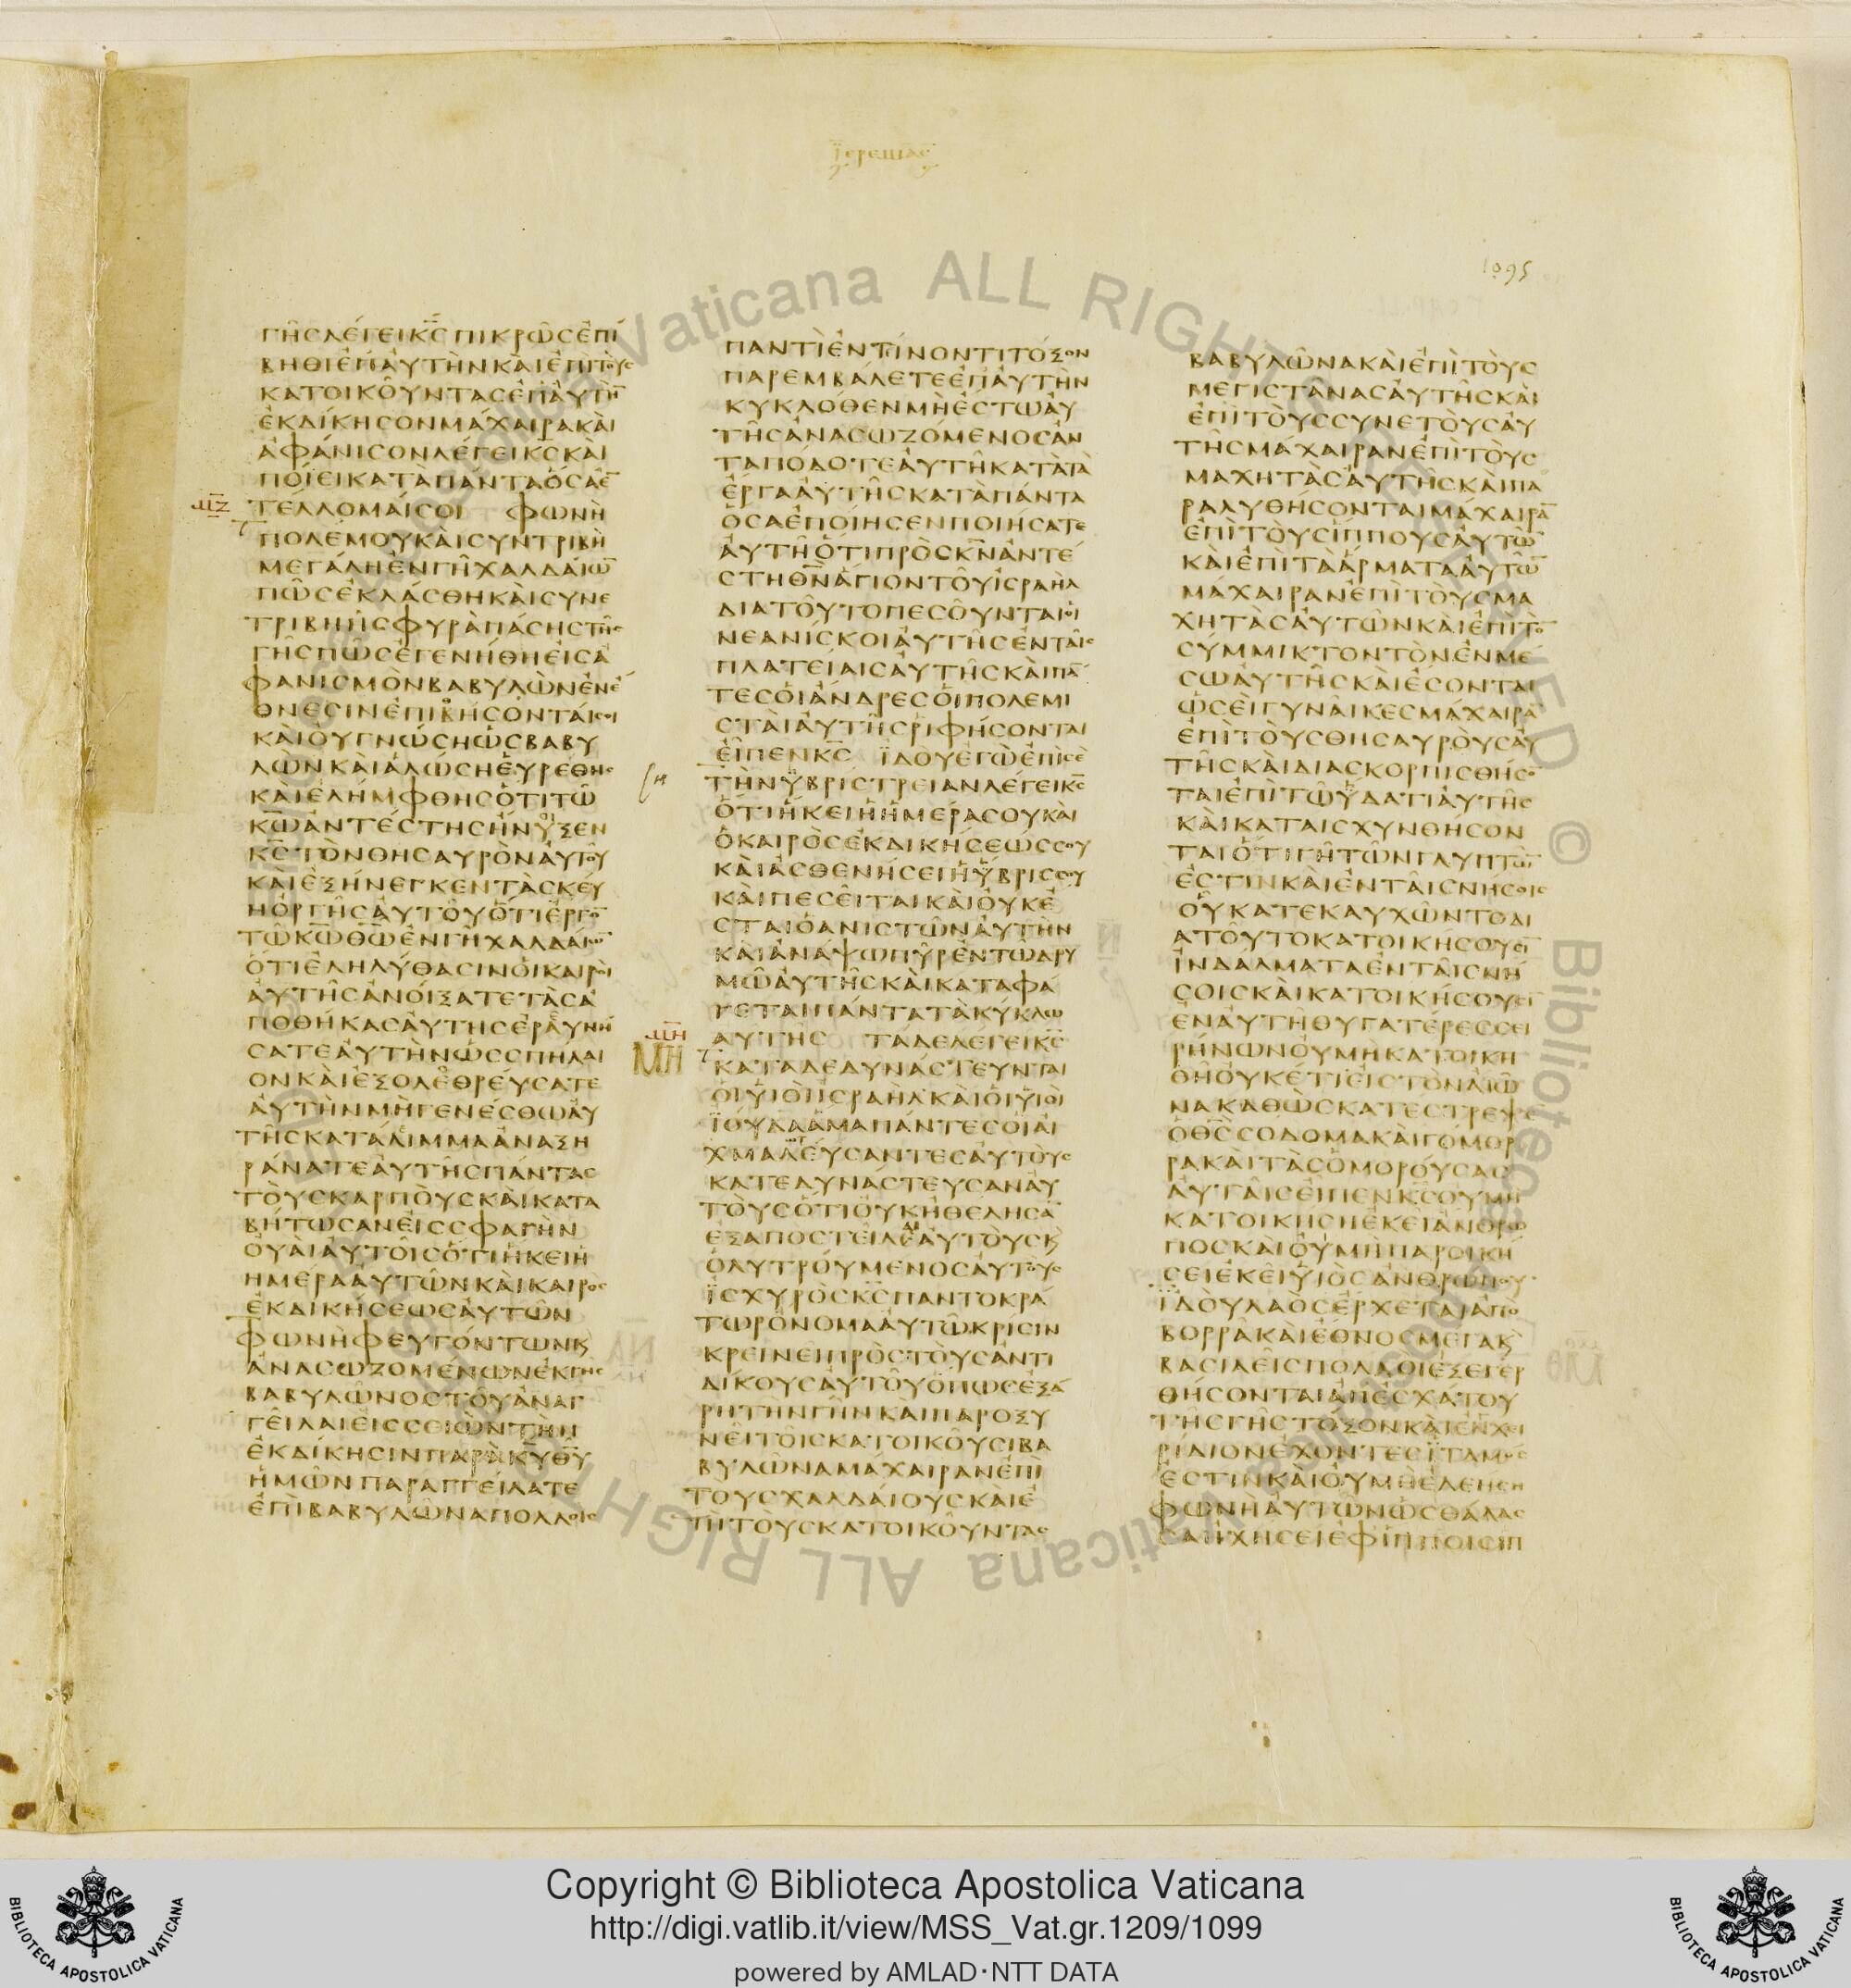 ϊερεμιας
1095
γῆςλέγεικ̅ς̅πικρῶςἐπί
βηθιἐπ᾽ἀυτὴνκαὶἐπὶτοὺς
κατοικοῦνταςἐπ᾽ἀυτη̅
ἐκδίκησονμάχαιρακαὶ
ἀφάνισονλέγεικ̅ς̅καὶ
ποίεικατὰπάνταὅσαἐ̅
μζ
τέλλομαίσοι φωνὴ
πολέμουκαὶσυντριβὴ
μεγάληἐνγῆχαλδαίω̅
πῶςἐκλάσθηκαὶσυνε
τρίβηἡσφυρὰπάσηςτῆς
γῆςπῶςἐγενήθηεἰςἀ
φανισμὸνβαβυλὼνἐνἔ
θνεσινἐπιθήσονταίσοι
καὶοὐγνώσηὡςβαβυ
λὼνκαὶἁλώσηεὑρέθης
καὶἐλήμφθηςὅτιτῶ
κ̅ω̅ἀντέστηςἤνοιξεν
κ̅ς̅τὸνθησαυρὸναὐτοῦ
καὶἐξήνεγκεντὰσκεύ
ηὀργῆςαὐτοῦὅτιἔργο̅
τῶκ̅ω̅θ̅ω̅ἐνγῆχαλδαίω̅
ὅτιἐληλύθασινοἱκαιροὶ
αὐτῆςἀνοίξατετὰςἀ
ποθήκαςαὐτῆςἐραυνή
σατεαὐτὴνὡςσπήλαι
ονκαὶἐξολεθρεύσατε
αὐτὴνμὴγενέσθωαὐ
τῆςκατάλιμμαἀναξη
ράνατεαὐτῆςπάντας
τοὺςκαρποὺςκαὶκατα
βήτωσανεἰςσφαγὴν
οὐαὶαὐτοῖςὅτιἥκειἡ
ἡμέρααὐτῶνκαὶκαιρὸς
ἐκδικήσεωςαὐτῶν
φωνὴφευγόντωνκ
ἀνασωζομένωνἐκγῆς
βαβυλῶνοςτοῦἀναγ
γεῖλαιεἰςσειὼντὴν
ἐκδίκησινπαρὰκ̅υ̅θ̅υ̅
ἡμῶνπαραγγείλατε
ἐπὶβαβυλῶναπολλοῖς
παντὶἐντίνοντιτόξον
παρεμβάλετεἐπ᾽αὐτὴν
κυκλόθενμὴἔστωαὐ
τῆςἀνασωζόμενοςἀν
ταπόδοτεαὐτῆκατὰτὰ
ἔργααὐτῆςκατὰπάντα
ὅσαἐποίησενποιήσατε
αὐτῆὅτιπρὸςκ̅ν̅ἀντέ
στηθ̅ν̅ἅγιοντοῦισραὴλ
διατοῦτοπεσοῦνταιοἱ
νεανίσκοιαὐτῆςἐνταῖς
πλατείαιςαὐτῆςκαὶπά̅
τεςοἱἄνδρεςοἱπολεμι
σταὶαὐτῆςῥιφήσονται
εἶπενκ̅ς̅ ϊδοὺἐγὼἐπὶσὲ
τὴνὕβριστρειανλέγεικ̅ς̅
ὅτιἥκειἡἡμέρασουκαὶ
ὁκαιρὸςἐκδικήσεώςσου
καὶἀσθενήσειἡὕβρισσου
καὶπεσεῖταικαὶοὐκἔ
σταιὁἀνιστῶναὐτὴν
καὶἀνάψωπῦρἐντῶδρυ
μῶαὐτῆςκαὶκαταφά
γεταιπάντατὰκύκλω
μη
ΜΗ
αὐτῆς τάδελέγεικ̅ς̅
καταδεδυνάστευνται
οἱυἱοὶισραὴλκαὶοἱυἱοὶ
ϊούδαἅμαπάντεςοἱαἰ
χμαλωτεύσαντεςαὐτοὺς
κατεδυνάστευσαναὐ
τοὺςὅτιοὐκἠθέλησα̅
ἐξαποστεῖλαιαὐτοὺςκ
ὁλυτρούμενοςαὐτοὺς
ϊσχυρὸςκ̅ς̅παντοκρά
τωρὄνομααὐτῶκρίσιν
κρεινεῖπρὸςτοὺςἀντι
δίκουςαὐτοῦὅπωςἐξά
ρητὴνγῆνκαὶπαροξυ
νεῖτοῖςκατοικοῦσιβα
βυλῶναμάχαιρανἐπὶ
τοὺςχαλδαίουςκαὶἐ
πὶτοὺςκατοικοῦντας
βαβυλῶνακαὶἐπὶτοὺς
μεγιστᾶναςαὐτῆςκαὶ
ἐπὶτοὺςσυνετοὺςαὐ
τῆςμάχαιρανἐπὶτοὺς
μαχητὰςαὐτῆςκαὶπα
ραλυθήσονταιμάχαιρα̅
ἐπὶτοὺςἵππουςαὐτῶ̅
καὶἐπὶτὰἅρματααὐτῶ̅
μάχαιρανἐπὶτοὺςμα
χητὰςαὐτῶνκαὶἐπὶτὸ̅
σύμμικτοντὸνἐνμέ
σωαὐτῆςκαὶἔσονται
ὡσεὶγυναῖκεςμάχαιρα̅
ἐπὶτοὺςθησαυροὺςαὐ
τῆςκαὶδιασκορπισθήσο̅
ταιἐπὶτῶὕδατιαὐτῆς
καὶκαταισχυνθήσον
ταιὅτιγῆτῶνγλυπτῶ̅
ἐστινκαὶἐνταῖςνήσοις
οὗκατεκαυχῶντοδι
ατοῦτοκατοικήσουσι̅
ἰνδάλματαἐνταῖςνή
σοιςκαὶκατοικήσουσι̅
ἐναὐτῆθυγατέρεςσει
ρήνωνοὐμὴκατοικη
θῆοὐκέτιεἰςτὸναἰῶ
νακαθὼςκατέστρεψε
ὁθ̅ς̅σοδομακαὶγόμορ
ρακαὶτὰςὁμορούσας
αὐταῖςεἶπενκ̅ς̅οὐμὴ
κατοικήσηἐκεῖἄνθρω
ποςκαὶοὐμὴπαροική
σειἐκεῖυἱὸςἀνθρώπου
ϊδοὺλαὸςἔρχεταιἀπὸ
βορρᾶκαὶἔθνοςμέγακ
βασιλεῖςπολλοὶἐξεγερ
θήσονταιἀπ᾽ἐσχάτου
τῆςγῆςτόξονκαὶἐνχει
ρίδιονἔχοντεςἰταμός
ἐστινκαὶοὐμὴἐλεήση
φωνὴαὐτῶνὡςθάλασ
σαἠχήσειἐφἵπποιςἱπ
Copyright © Biblioteca Apostolica Vaticana
http://digi.vatlib.it/view/MSS_Vat.gr.1209/1099
powered by AMLAD·NTT DATA
BIBLIOTECA APOSTOLICA VATICANA
BIBLIOTECA APOSTOLICA VATICANA